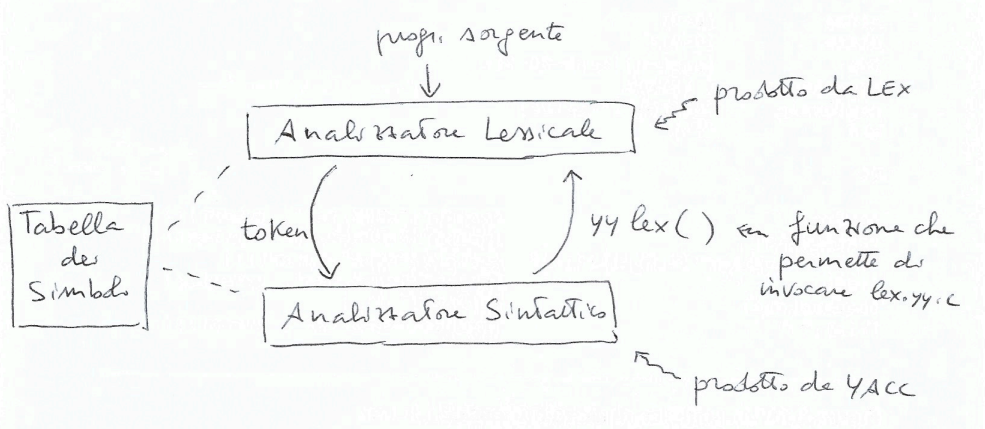 progr. sorgente
prodotto da LEX
Analizzatore Lessicale
Tabella
dei
Simboli
token
yylex()
funzione che
permette di
invocare lex.yy.c
Analizzatore Sintattico
prodotto da YACC